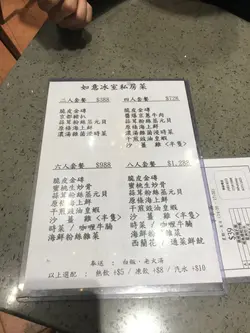 如意冰室私房菜
二人套餐 $388
脆皮金磚
京都豬扒
蒜茸粉絲蒸元貝
原條海上鮮
濃湯雞菌浸時菜
四人套餐 $728
脆皮金磚
蒜茸粉絲蒸元貝
原條海上鮮
濃湯雞菌浸時菜
干煎豉油皇蝦
沙薑雞 <半隻>
六人套餐 $988
脆皮金磚
蜜桃生炒骨
蒜茸粉絲蒸元貝
原條海上鮮
干煎豉油皇蝦
沙薑雞 <半隻>
時菜 / 咖喱牛腩
海鮮粉絲雜菜
八人套餐 $1,288
脆皮金磚
蜜桃生炒骨
蒜茸粉絲蒸元貝
原條海上鮮
干煎豉油皇蝦
沙薑雞 <半隻>
時菜 / 咖喱牛腩
海鮮粉絲雜菜
西蘭花 / 通菜鮮魷
奉送 : 白飯、老火湯
以上選配 : 熱飲 +$5 / 凍飲 +$8 / 汽水 +$10